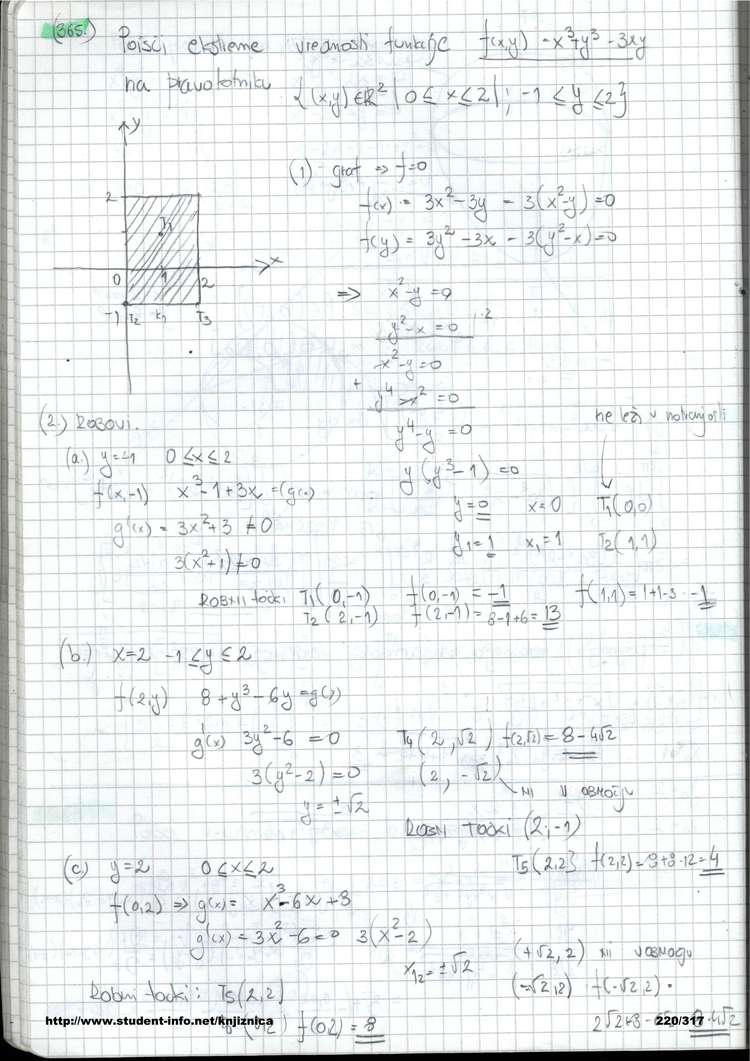 (365.) Poišči ekstreme vrednosti funkcije f(x,y) = x³+y³-3xy
na pravokotniku {(x,y) ∈ R² | 0 ≤ x ≤ 2 ; -1 ≤ y ≤ 2}
y
2
T1
0 1 2 x
-1 T2 K1 T3
(1) graf => f=0
f(x) = 3x²-3y = 3(x²-y)=0
f(y) = 3y²-3x = 3(y²-x)=0
=> x²-y=0
y²-x=0 ·2
x²-y=0
+ y⁴-x²=0
y⁴-y=0
y(y³-1)=0
ne leži v notranjosti
y=0 x=0 T1(0,0)
y1=1 x1=1 T2(1,1)
f(1,1)=1+1-3=-1
(2.) ROBOVI.
(a.) y=-1 0≤x≤2
f(x,-1) x³-1+3x =
g'(x) = 3x²+3 ≠0
3(x²+1)≠0
ROBNI točki T1(0,-1) f(0,-1) = -1
T2(2,-1) f(2,-1) = 8-1+6 = 13
(b.) x=2 -1≤y≤2
f(2,y) 8+y³-6y=g(y)
g'(x) 3y²-6=0
3(y²-2)=0
y=±√2
T4(2,√2) f(2,√2)=8-4√2
(2,-√2) ni v območju
ROBNI TOČKI (2,-1)
T5(2,2) f(2,2)=8+8-12=4
(c.) y=2 0≤x≤2
f(0,2) => g(x)= x³-6x+8
g'(x)=3x²-6=0 3(x²-2)
x12=±√2
(+√2,2) ni v območju
(-√2,2) f(-√2,2)=
Robni točki: T5(2,2)
f(0,2)=8
http://www.student-info.net/knjiznica
220/317